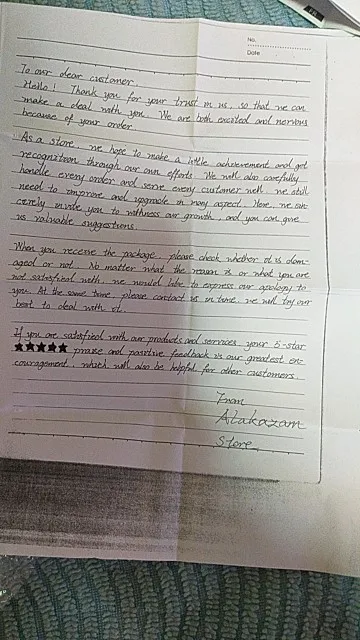 No.
Date
To our dear customer.
Hello! Thank you for your trust in us, so that we can
make a deal with you. We are both excited and nervous
because of your order
As a store, we hope to make a little achievement and get
recognition through our own efforts. We will also carefully
handle every order and serve every customer well, we still
need to improve and upgrade in many aspect. Here, we sin-
cerely invite you to witness our growth, and you can give
us valuable suggestions.
When you receive the package, please check whether it is dam-
aged or not. No matter what the reason is or what you are
not satisfied with, we would like to express our apology to
you. At the same time, please contact us in time, we will try our
best to deal with it.
If you are satisfied with our products and services, your 5-star
★★★★★ praise and positive feedback is our greatest en-
couragement, which will also be helpful for other customers.
From
Alakazam
Store